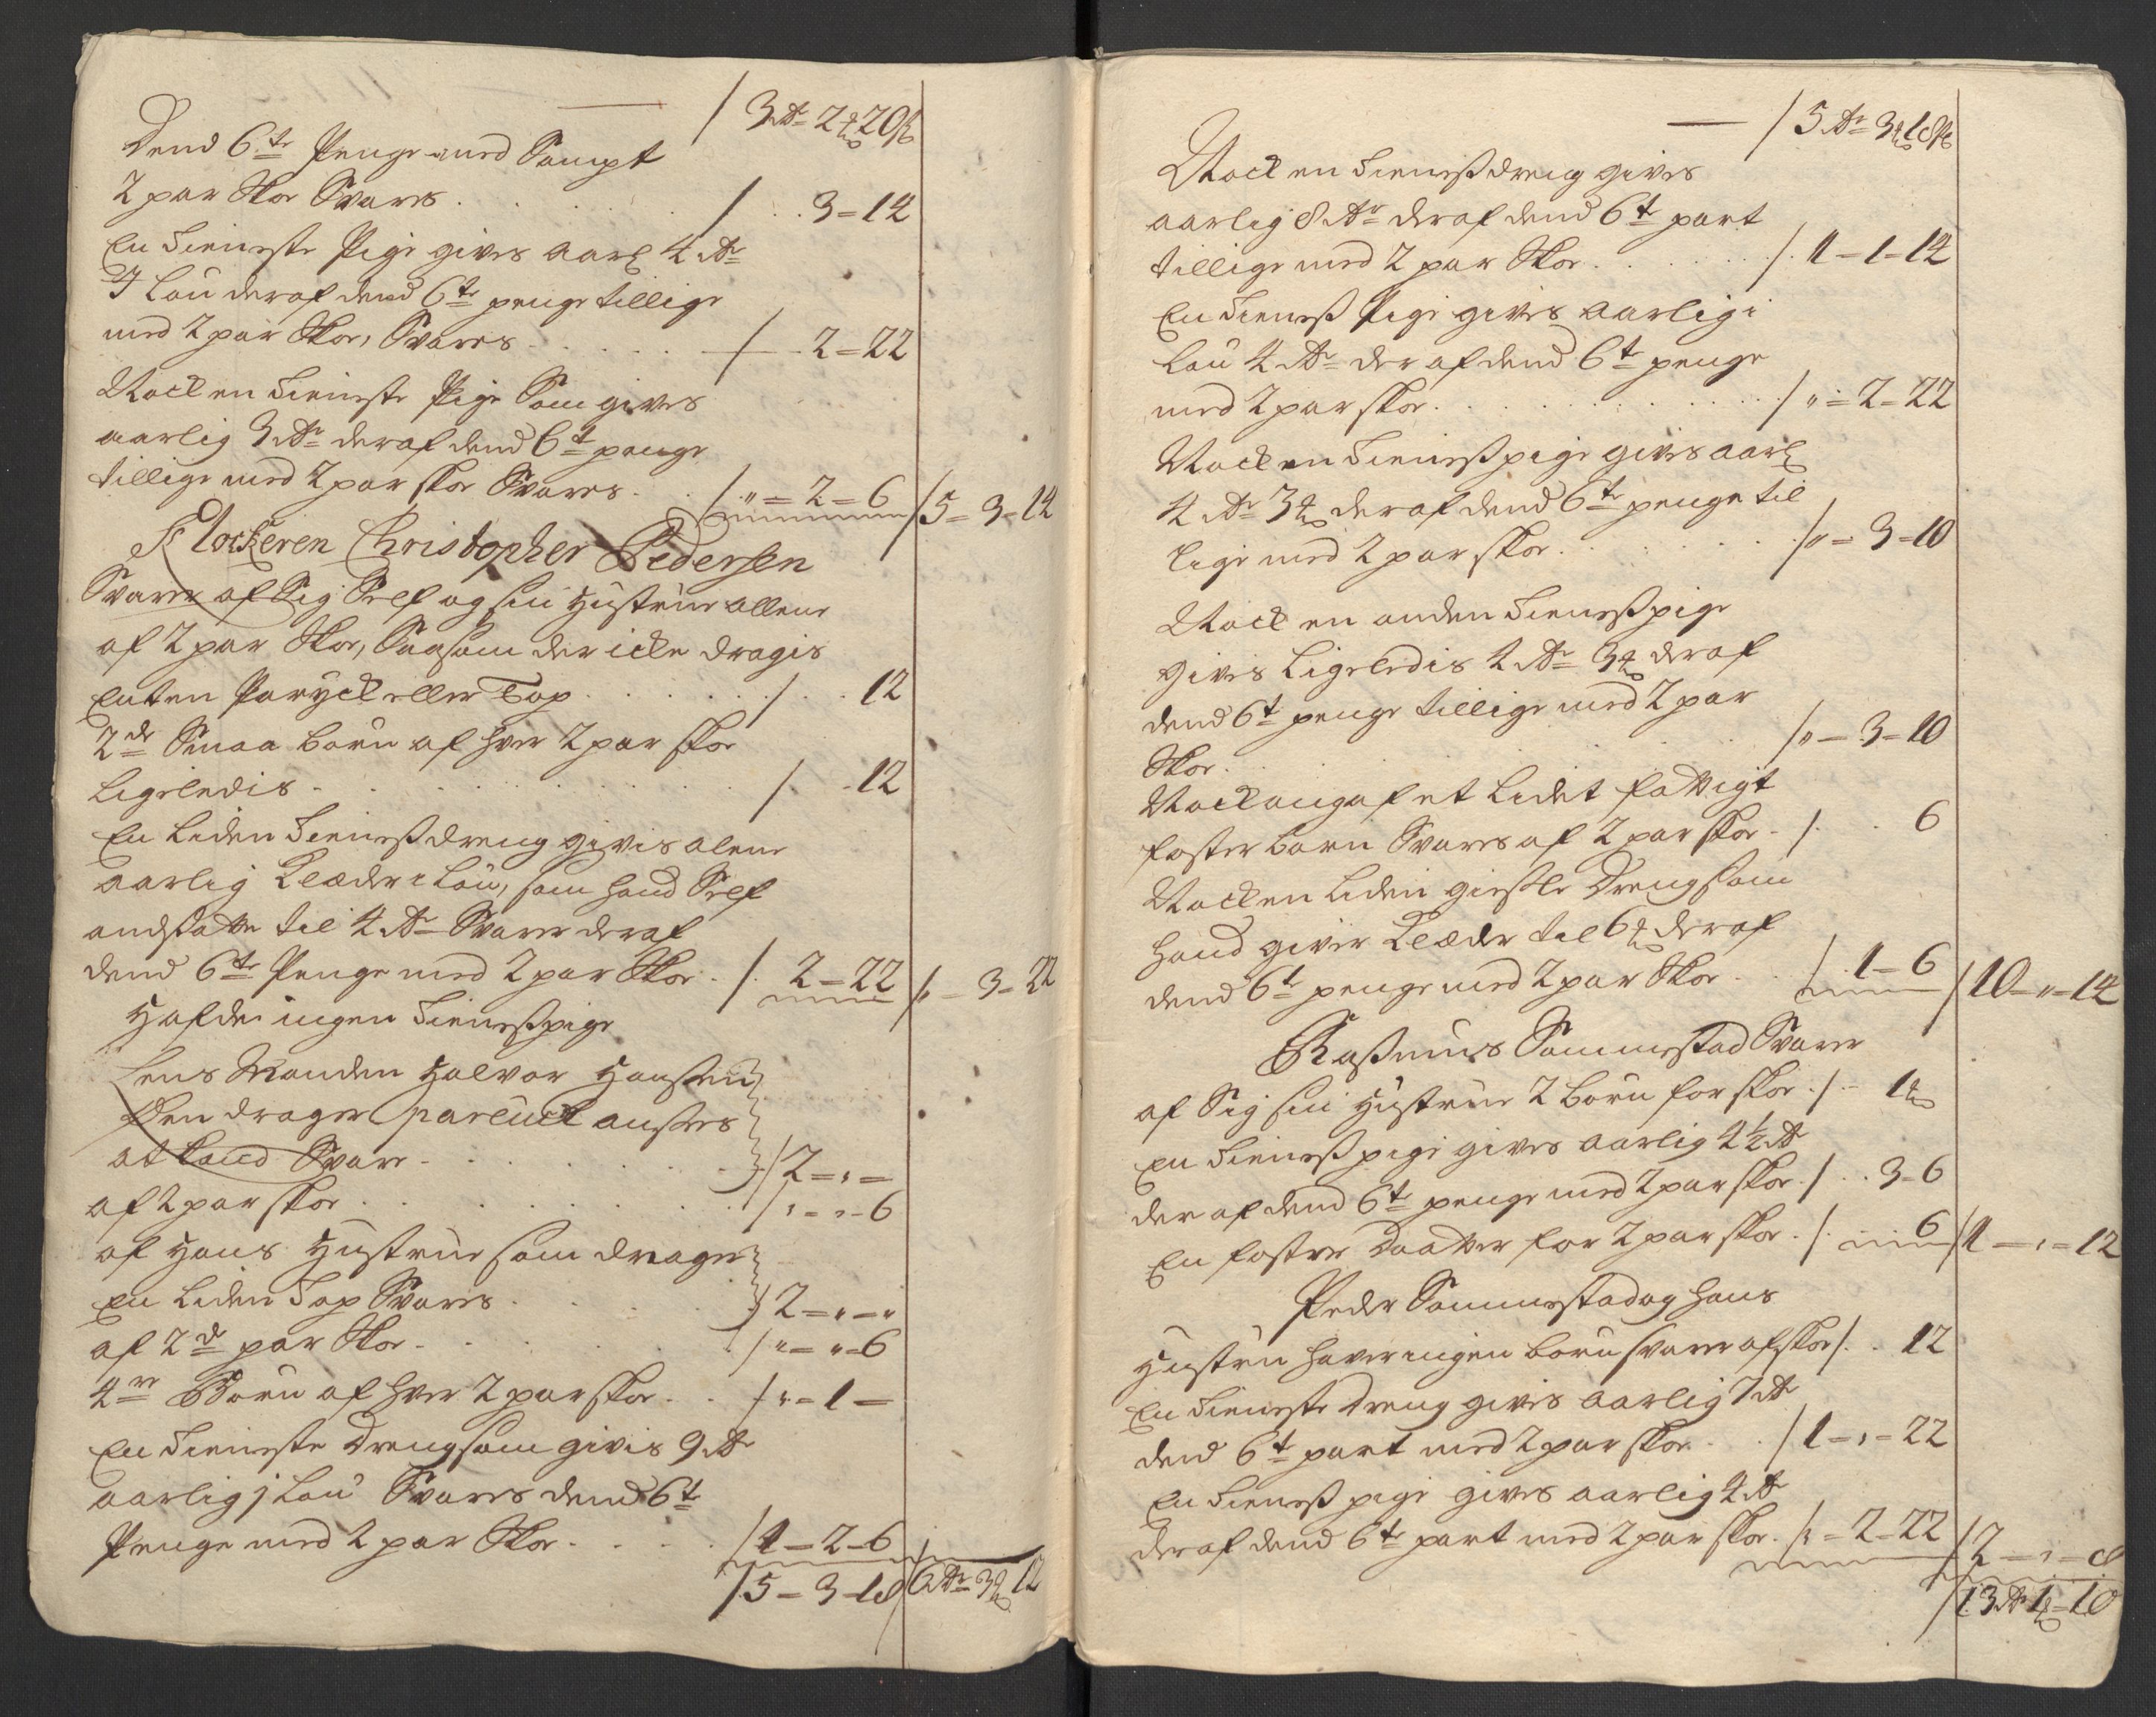 / 3 Rdr 2 ort 20 s
Dend 6te Penge med Sampt
2 par Skoe Svares . . . / 3 = 14
En Tieniste Pige gives aarl: 4 Rdr
J Løn deraf dend 6te penge tillige
med 2 par Skoe, Svares . . . / 2 = 22
Nock en Tieniste Pige Som gives
aarlig 3 Rdr deraf dend 6te penge
tillige med 2 par skoe Svares . / " = 2 = 6 / 5 = 3 = 14
Klockeren Christopher Pedersen
Svarer af Sig Self og sin Hustrue allene
af 2 par Skoe, Saasom der icke dragis
Enten Paryck eller Top . . . / . . 12
2de Smaa børn af hver 2 par skoe
Ligeledis . . . / . 12
En Liden Tienestdreng givis alene
aarlig Klæder i Løn, som hand Self
andsætter til 4 Rdr Svarer deraf
dend 6te Penge med 2 par Skoe . / 2 = 22 / " = 3 = 22
Hafde ingen Tienestpige
Lens Manden Halvor Hansen
Den drager pareuck ansees
at kand Svare . . . / 2 = " =
af 2 par skoe . . . / " = " = 6
af Hans Hustrue som drager
En Liden Top Svares . . . / 2 = " = "
af 2de par Skoe . . . / " = " = 6
4re Børn af hver 2 par skoe . . / " = 1 =
En Tieniste Dreng som givis 9 Rdr
aarlig j Løn Svares dend 6te
Penge med 2 par Skoe . . . / 1 = 2 = 6
/ 5 = 3 = 18 / 6 Rdr 3 ort 12
/ 5 Rdr 3 ort 18 s
Nock en Tienestdreng gives
aarlig 8 Rdr deraf dend 6te part
tillige med 2 par Skoe . . . / 1 = 1 = 14
En Tienest Pige givis aarlig i
Løn 4 Rdr der af dend 6te penge
med 2 par skoe . . . / " = 2 = 22
Nock en Tienestpige givis aarl:
4 Rdr 3 ort deraf dend 6te penge til
lige med 2 par skoe . . . / " = 3 = 10
Nock en anden Tienestpige
givis Ligeledis 4 Rdr 3 ort deraf
dend 6te penge tillige med 2 par
Skoe . . . / " = 3 = 10
Nock af et Lidet fattigt
foster barn Svares af 2 par skoe . / . 6
Nock en Liden giestle Dreng som
hand giver Klæder til 6 ort deraf
dend 6te penge med 2 par Skoe . . / 1 = 6 / 10 = " = 14
Rasmus Sammestad Svarer
af Sig sin Hustrue 2 børn for skoe . / . 1 ort
En Tienest pige gives aarlig 4½ Rdr
der af dend 6te penge med 2 par skoe . / . . 3 = 6
En foster Daatter for 2 par skoe . / . 6 / 1 = " = 12
Peder Sammestad og hans
Hustru haver ingen børn svarer af skoe / . 12
En Tieniste dreng givis aarlig 7 Rdr
dend 6te part med 2 par skoe . . / 1 = " = 22
En Tienest pige gives aarlig 4 Rdr
deraf dend 6te part med 2 par skoe . / " = 2 = 22 / 2 = " = 8
/ 13 Rdr 1 ort = 10